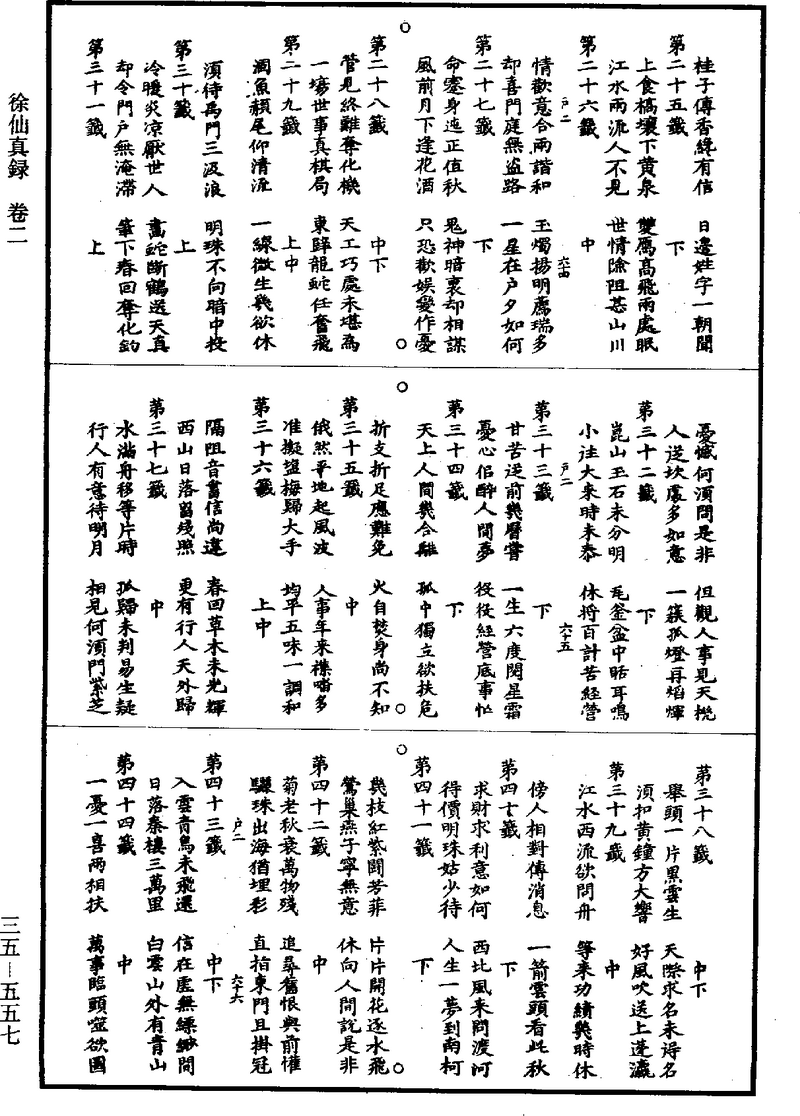 徐仙真録 卷二
桂子傳香絳有信 日邊姓字一朝聞
第二十五籤 下
上食槁壤下黄泉 雙鴈高飛兩處眠
江水兩派人不見 世情險阻甚山川
第二十六籤 中
戸二 六古
情歡意合兩諧和 玉燭揚明薦瑞多
却喜門庭無盗路 一星在户夕如何
第二十七籤 下
命蹇身迍正值秋 鬼神暗裏却相謀
風前月下逢花酒 只恐歡娛變作憂
第二十八籤 中下
管見終難奪化機 天工巧處未堪為
一塲世事真棋局 東歸龍蛇任奮飛
第二十九籤 上中
涸魚頳尾仰清流 一線微生幾欲休
須待禹門三汲浪 明珠不向暗中投
第三十籤 上
冷暖炎凉厭世人 畵蛇斷鶴送天真
却令門户無淹滯 筆下春回奪化鈞
第三十一籤 上
憂慽何須問是非 但觀人事見天機
人逆坎處多如意 一簇孤燈再熖煇
第三十二籤 下
崑山玉石未分明 瓦釜盆中聒耳鳴
小注大来時未泰 休将百計苦經營
戸二 六十五
第三十三籤 下
甘苦送前幾曆嘗 一生六度閲星霜
憂心佀醉人間夢 役役經營底事忙
第三十四籤 下
天上人間幾合離 孤中獨立欲扶危
折支折足應難免 火自焚身尚不知
第三十五籤 中
俄然平地起風波 人事年来襍嗒多
准擬盐梅歸大手 均平五味一調和
第三十六籤 上中
隔阻音書信尚違 春回草木未光輝
西山日落留殘照 更有行人天外歸
第三十七籤 中
水滿舟移等片時 孤歸未判易生疑
行人有意待明月 相見何須門紫芝
第三十八籤 中下
舉頭一片黑雲生 天際求名未得名
須扣黄鐘方大響 好風吹送上蓬瀛
第三十九籤 中
江水西流欲問舟 等来功績幾時休
傍人相對傳消息 一箭雲頭看此秋
第四十籤 下
求財求利意如何 西北風来問渡河
得價明珠姑少待 人生一夢到南柯
第四十一籤 下
幾枝紅紫鬬芳菲 片片開花逐水飛
鶯巢燕子寧無意 休向人間説是非
第四十二籤 中
菊老秋衰萬物殘 追尋舊恨與前懽
驪珠出海猶埋彩 直指東門且掛冠
戸二 六十六
第四十三籤 中下
入雲青鳥未飛還 信在虗無縹緲間
日落秦樓三萬里 白雲山外有青山
第四十四籤 中
一憂一喜兩相扶 萬事臨頭噬欲圖
三五—五五七